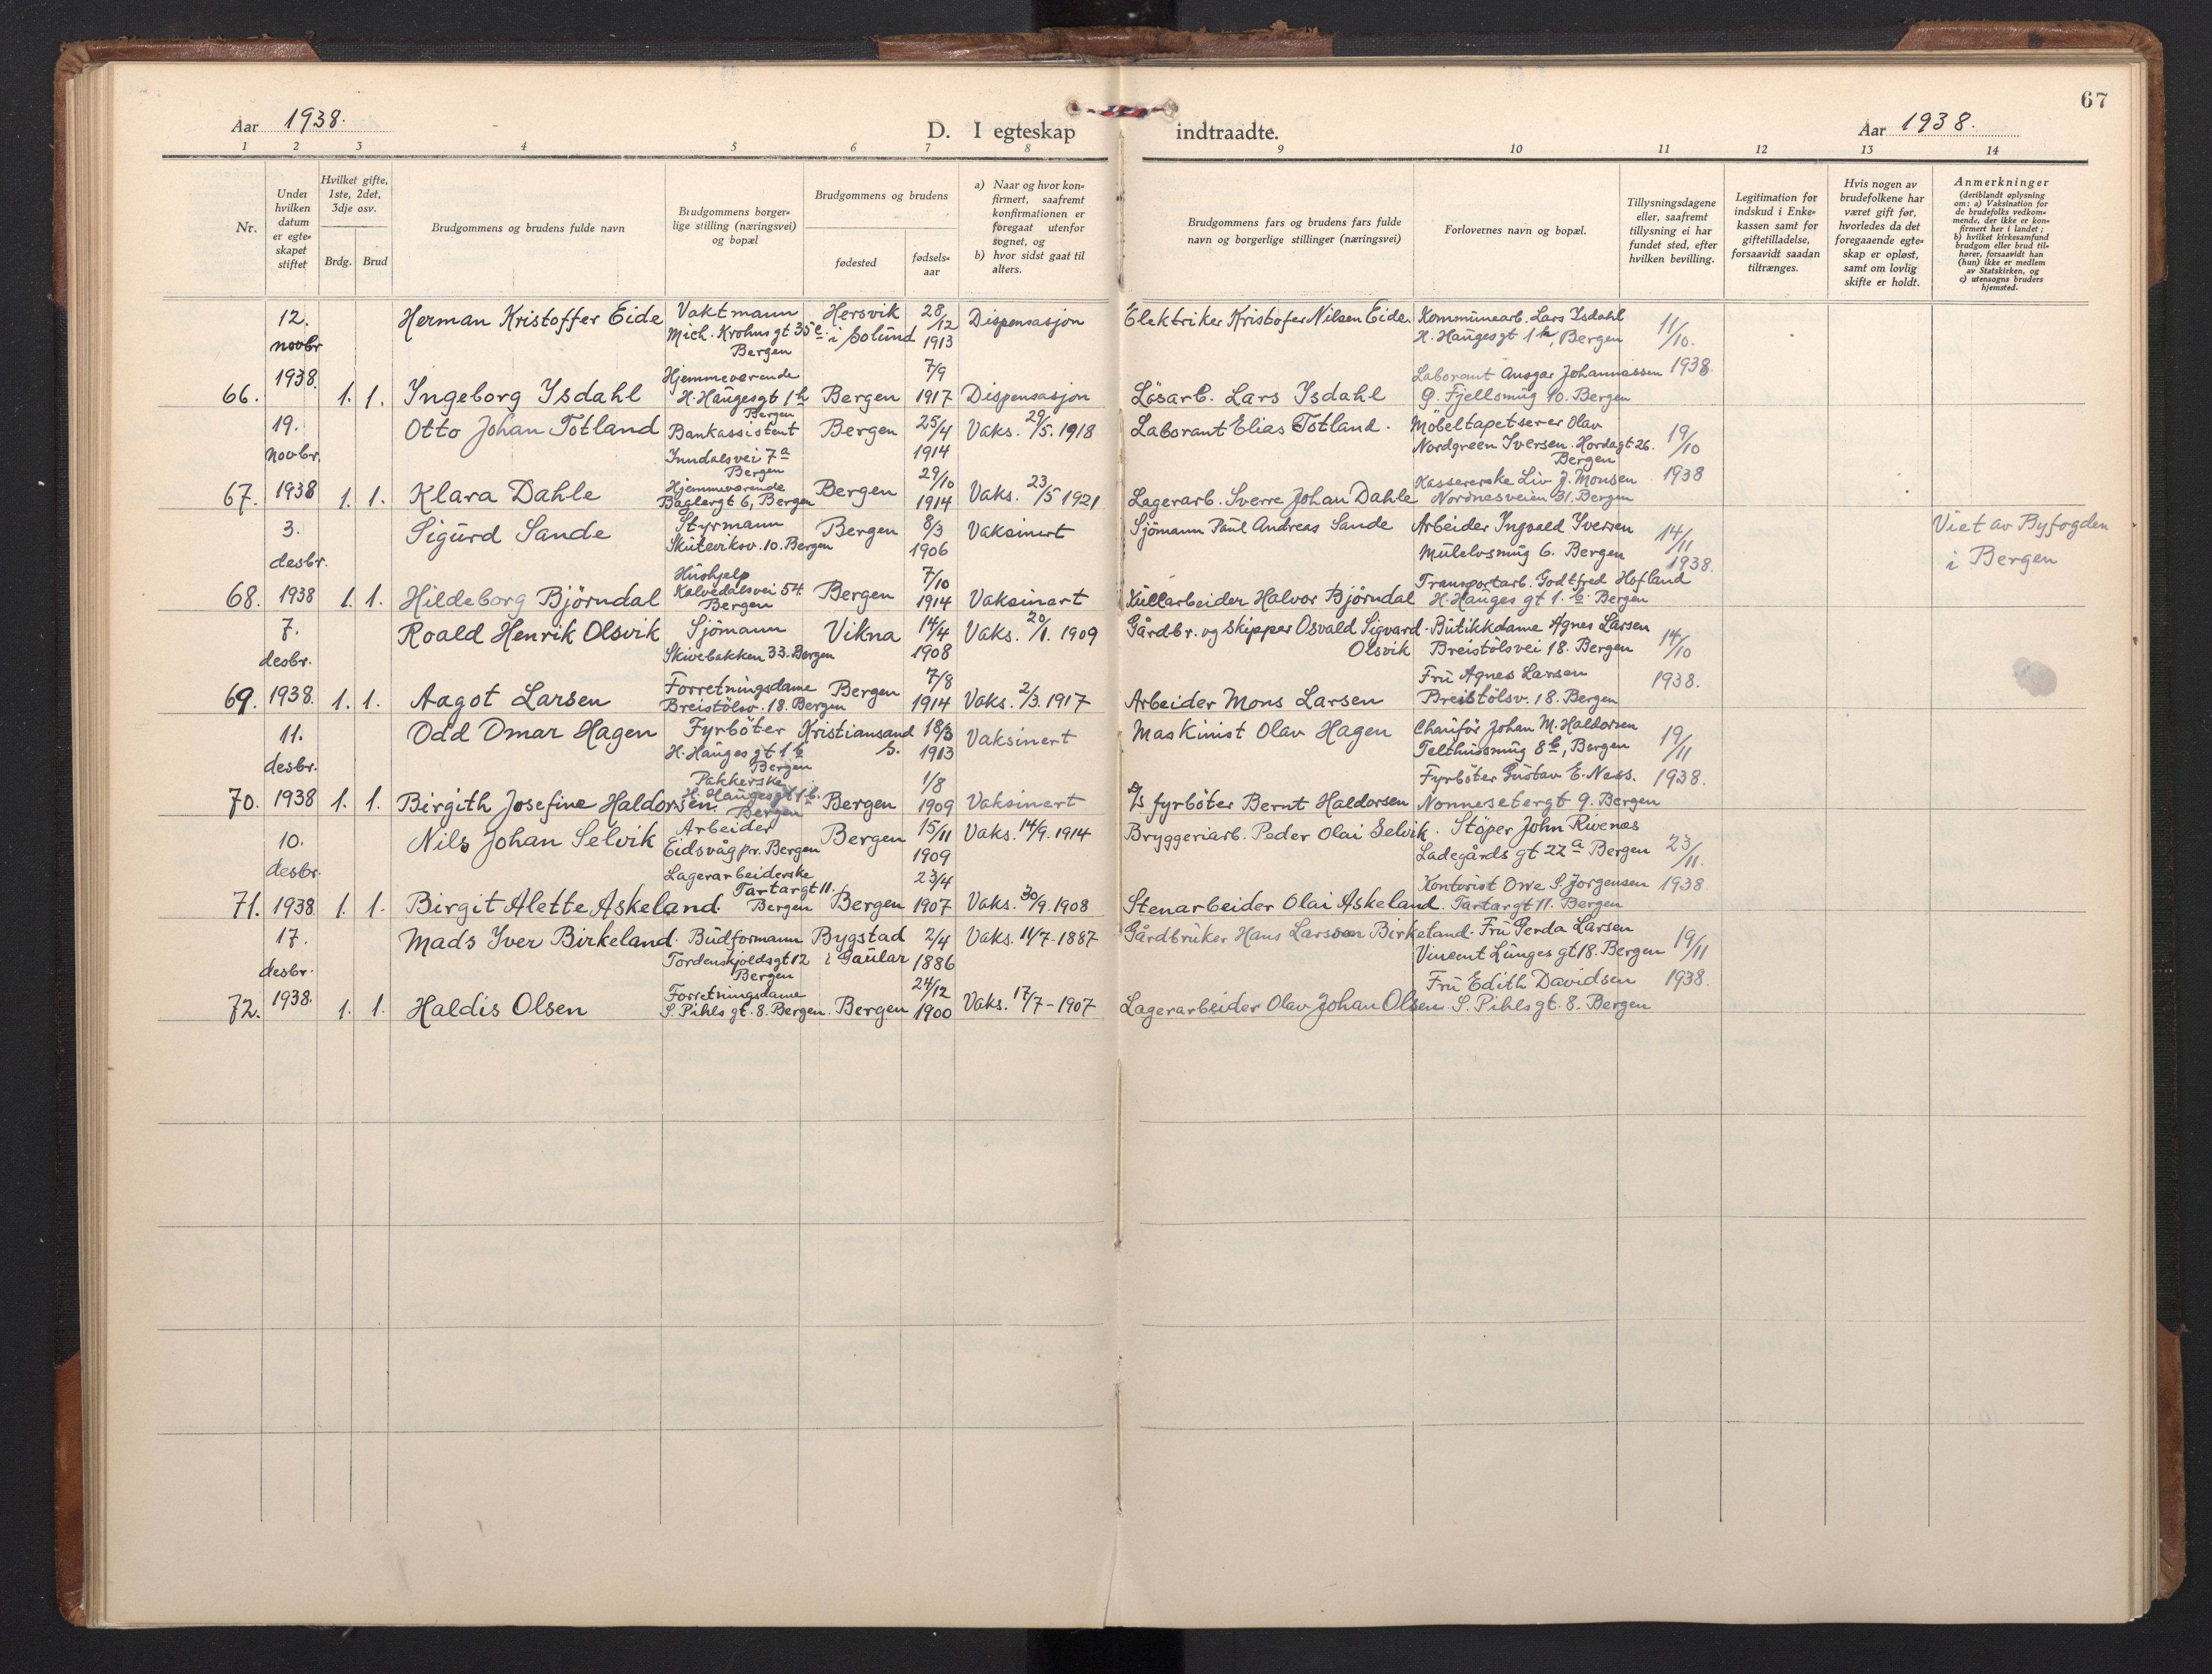 67
Aar 1938.
D. I egteskap indtraadte.
Aar 1938.
1 2 3 4 5 6 7 8 9 10 11 12 13 14
Nr.
Under hvilken datum er egte- skapet stiftet
Hvilket gifte, 1ste, 2det, 3dje osv.
Brdg. Brud
Brudgommens og brudens fulde navn
Brudgommens borger- lige stilling (næringsvei) og bopæl
Brudgommens og brudens
fødested
fødsels- aar
a) Naar og hvor kon- firmert, saafremt konfirmationen er foregaat utenfor sognet, og
b) hvor sidst gaat til alters.
Brudgommens fars og brudens fars fulde navn og borgerlige stillinger (næringsvei)
Forlovernes navn og bopæl.
Tillysningsdagene eller, saafremt tillysning ei har fundet sted, efter hvilken bevilling.
Legitimation for indskud i Enke- kassen samt for giftetilladelse, forsaavidt saadan tiltrænges.
Hvis nogen av brudefolkene har været gift før, hvorledes da det foregaaende egte- skap er opløst, samt om lovlig skifte er holdt.
Anmerkninger
(deriblandt oplysning om: a) Vaksination for de brudefolks vedkom- mende, der ikke er kon- firmert her i landet; b) hvilket kirkesamfund brudgom eller brud til- hører, forsaavidt han (hun) ikke er medlem av Statskirken, og c) utensogns bruders hjemsted.
12. novbr 1938.
Herman Kristoffer Eide
Vaktmann Mich. Krohns gt 35 Bergen
Hersvik i Solund
28/12 1913
Dispensasjon
Elektriker Kristofer Nilsen Eide.
Kommunearb. Lars Isdahl H. Haugesgt 1 b, Bergen
11/10. 1938.
66. 1. 1.
Ingeborg Isdahl
Hjemmeværende H. Haugesgt 1 b Bergen
Bergen
7/9 1917
Dispensasjon
Løsarb. Lars Isdahl
Laborant Ansgar Johannessen Fjellsmug 10. Bergen
19. novbr. 1938
Otto Johan Totland
Bankassistent Inndalsvei 7a Bergen
Bergen
25/4 1914
Vaks. 29/5. 1918
Laborant Elias Totland.
Møbeltapetserer Olav Nordgreen Iversen. Hordagt 26. Bergen
19/10 1938
67. 1. 1.
Klara Dahle
Hjemmeværende Baglergt 6, Bergen
Bergen
29/10 1914
Vaks. 23/5 1921
Lagerarb. Sverre Johan Dahle
Kassererske Liv J. Monsen Nordnesveien 31. Bergen
3. desbr. 1938
Sigurd Sande
Styrmann Skuteviksv. 10. Bergen
Bergen
8/3 1906
Vaksinert
Sjømann Paul Andreas Sande
Arbeider Ingvald Iversen Mulelvsmug 6. Bergen
14/11 1938.
Viet av Byfogden i Bergen
68. 1. 1.
Hildeborg Bjørndal
Hushjelp Kalvedalsvei 54 Bergen
Bergen
7/10 1914
Vaksinert
Kullarbeider Halvor Bjørndal
Transportarb. Godtfred Hofland H. Hauges gt 1. b. Bergen
7. desbr. 1938.
Roald Henrik Olsvik
Sjømann Skivebakken 33. Bergen
Vikna
14/4 1908
Vaks. 20/1. 1909
Gårdbr. og skipper Osvald Sigvard Olsvik
Butikkdame Agnes Larsen Breistølsvei 18. Bergen
14/10 1938.
69. 1. 1.
Aagot Larsen
Forretningsdame Breistølsv. 18. Bergen
Bergen
7/8 1914
Vaks. 2/3. 1917
Arbeider Mons Larsen
Fru Agnes Larsen Breistølsv. 18. Bergen
11. desbr. 1938
Odd Omar Hagen
Fyrbøter H. Hauges gt 1 b Bergen
Kristiansand S.
18/3 1913
Vaksinert
Maskinist Olav Hagen
Chauffør Johan M. Haldorsen Telthussmug 8 b, Bergen
19/11 1938.
70. 1. 1.
Birgith Josefine Haldorsen.
Pakkerske H. Haugesgt 1 b. Bergen
Bergen
1/8 1909
Vaksinert
fyrbøter Bernt Haldorsen
Fyrbøter Gustav E. Ness. Nonnesetergt 9. Bergen
10. desbr. 1938
Nils Johan Selvik
Arbeider Eidsvåg pr. Bergen
Bergen
15/11 1909
Vaks. 14/9. 1914
Bryggeriarb. Peder Olai Selvik.
Støper John Rivenæs Ladegårds gt 22 a Bergen
23/11. 1938
71. 1. 1.
Birgit Alette Askeland.
Lagerarbeiderske Tartargt 11. Bergen
Bergen
23/4 1907
Vaks. 30/9. 1908
Stenarbeider Olai Askeland.
Kontorist Owe S. Jorgensen Tartargt 11. Bergen
17. desbr. 1938.
Mads Iver Birkeland.
Budformann Tordenskjoldsgt 12 Bergen
Bygstad i Gaular
2/4 1886
Vaks. 11/7-1887
Gårdbruker Hans Larsson Birkeland.
Fru Gerda Larsen Vincent Lunges gt 18. Bergen
19/11 1938.
72. 1. 1.
Haldis Olsen
Forretningsdame S. Pihls gt. 8. Bergen.
Bergen
24/12 1900
Vaks. 17/7-1907
Lagerarbeider Olav Johan Olsen.
Fru Edith Davidsen S. Pihls gt. 8. Bergen